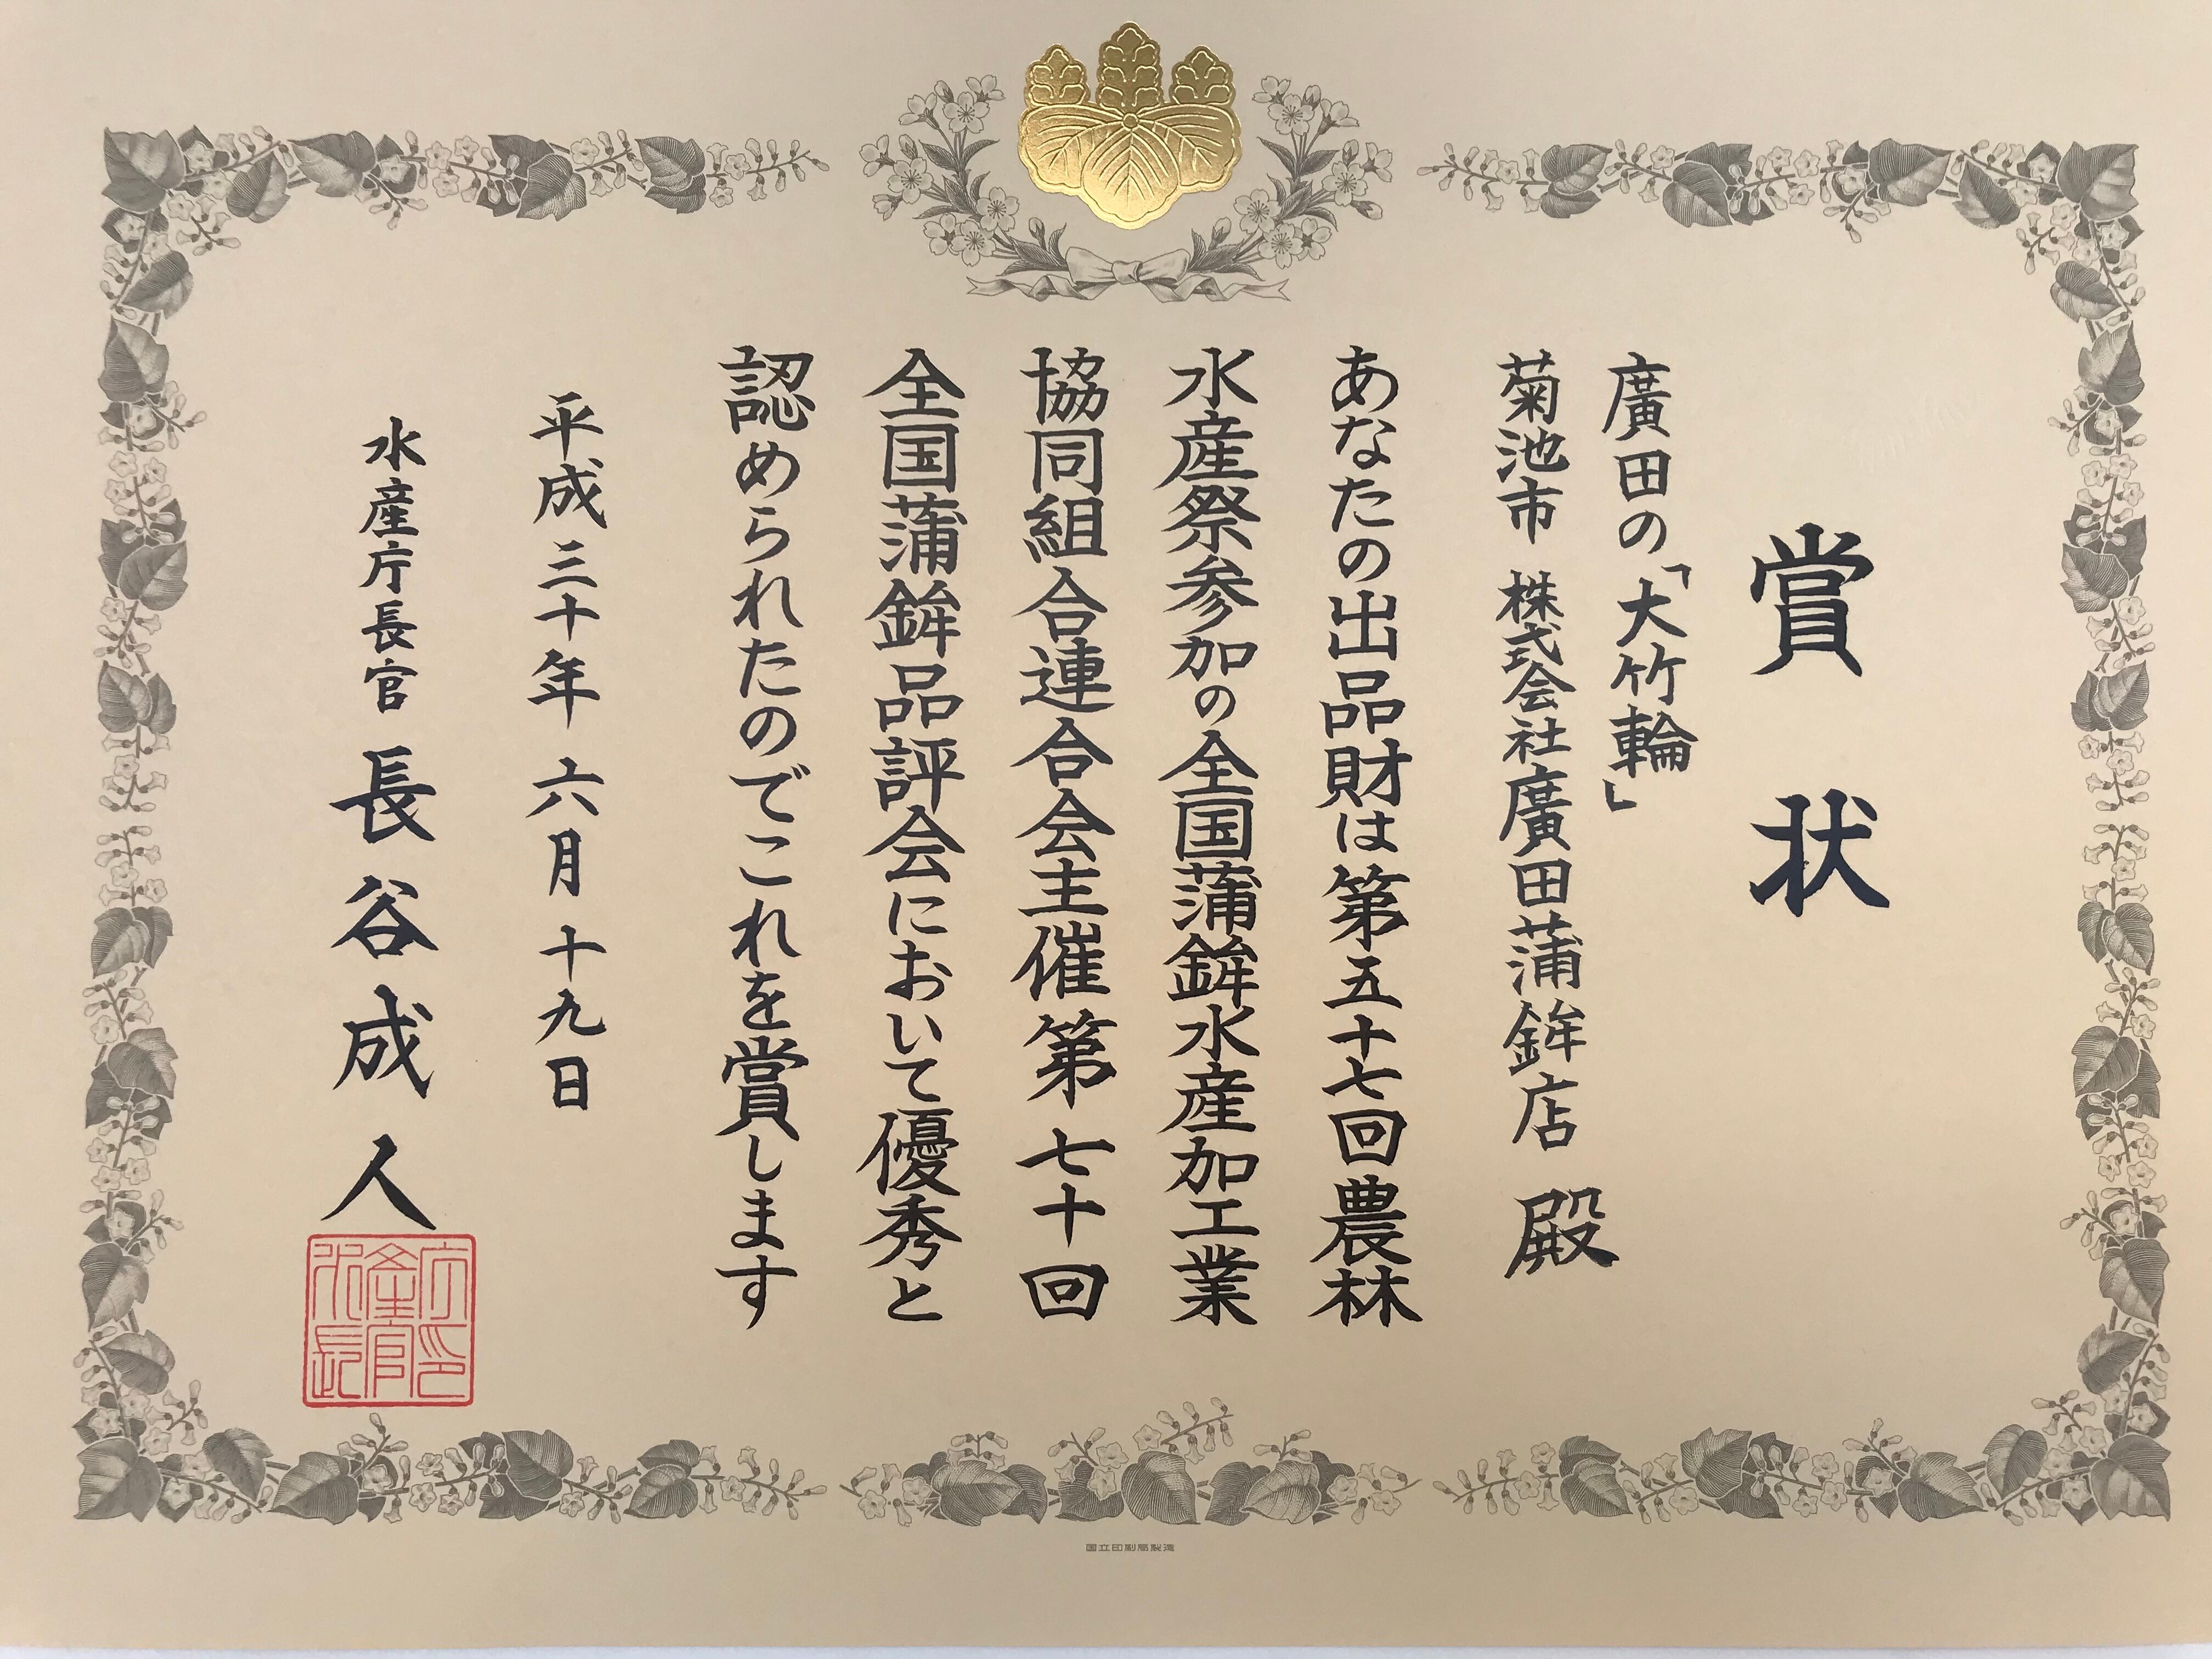 賞状
廣田の「大竹輪」
菊池市 株式会社廣田蒲鉾店 殿
あなたの出品財は第五十七回農林
水産祭参加の全国蒲鉾水産加工業
協同組合連合会主催第七十回
全国蒲鉾品評会において優秀と
認められたのでこれを賞します
平成三十年六月十九日
水産庁長官 長谷成人
水産庁長官印
国立印刷局製造